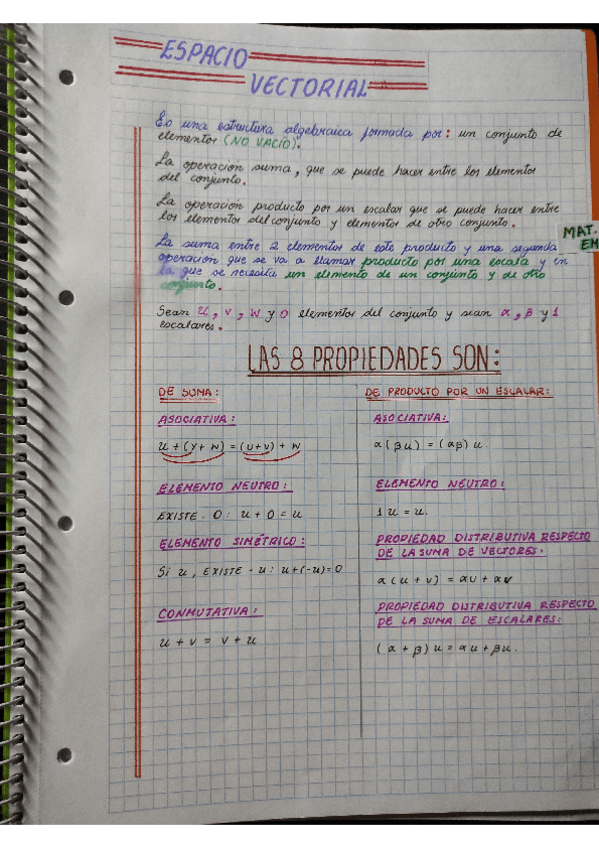 ESPACIO
VECTORIAL
Es una estructura algebraica formada por: un conjunto de
elementos (NO VACIO).
La operación suma, que se puede hacer entre los elementos
del conjunto.
La operación producto por un escalar que se puede hacer entre
los elementos del conjunto y elementos de otro conjunto.
La suma entre 2 elementos de este producto y una segunda
operación que se va a llamar producto por una escala y en
la que se necesita un elemento de un conjunto y de otro
conjunto.
MAT.
EM
Sean u, v, w y 0 elementos del conjunto y sean α, β y 1
escalares.
LAS 8 PROPIEDADES SON:
DE SUMA:
ASOCIATIVA:
u + (v + w) = (u + v) + w
ELEMENTO NEUTRO:
EXISTE . 0 : u + 0 = u
ELEMENTO SIMÉTRICO:
Si u, EXISTE - u : u + (-u) = 0
CONMUTATIVA:
u + v = v + u
DE PRODUCTO POR UN ESCALAR:
ASOCIATIVA:
α (βu) = (αβ) u.
ELEMENTO NEUTRO:
1 u = u.
PROPIEDAD DISTRIBUTIVA RESPECTO
DE LA SUMA DE VECTORES.
α (u + v) = αu + αv
PROPIEDAD DISTRIBUTIVA RESPECTO
DE LA SUMA DE ESCALARES:
(α + β) u = αu + βu.